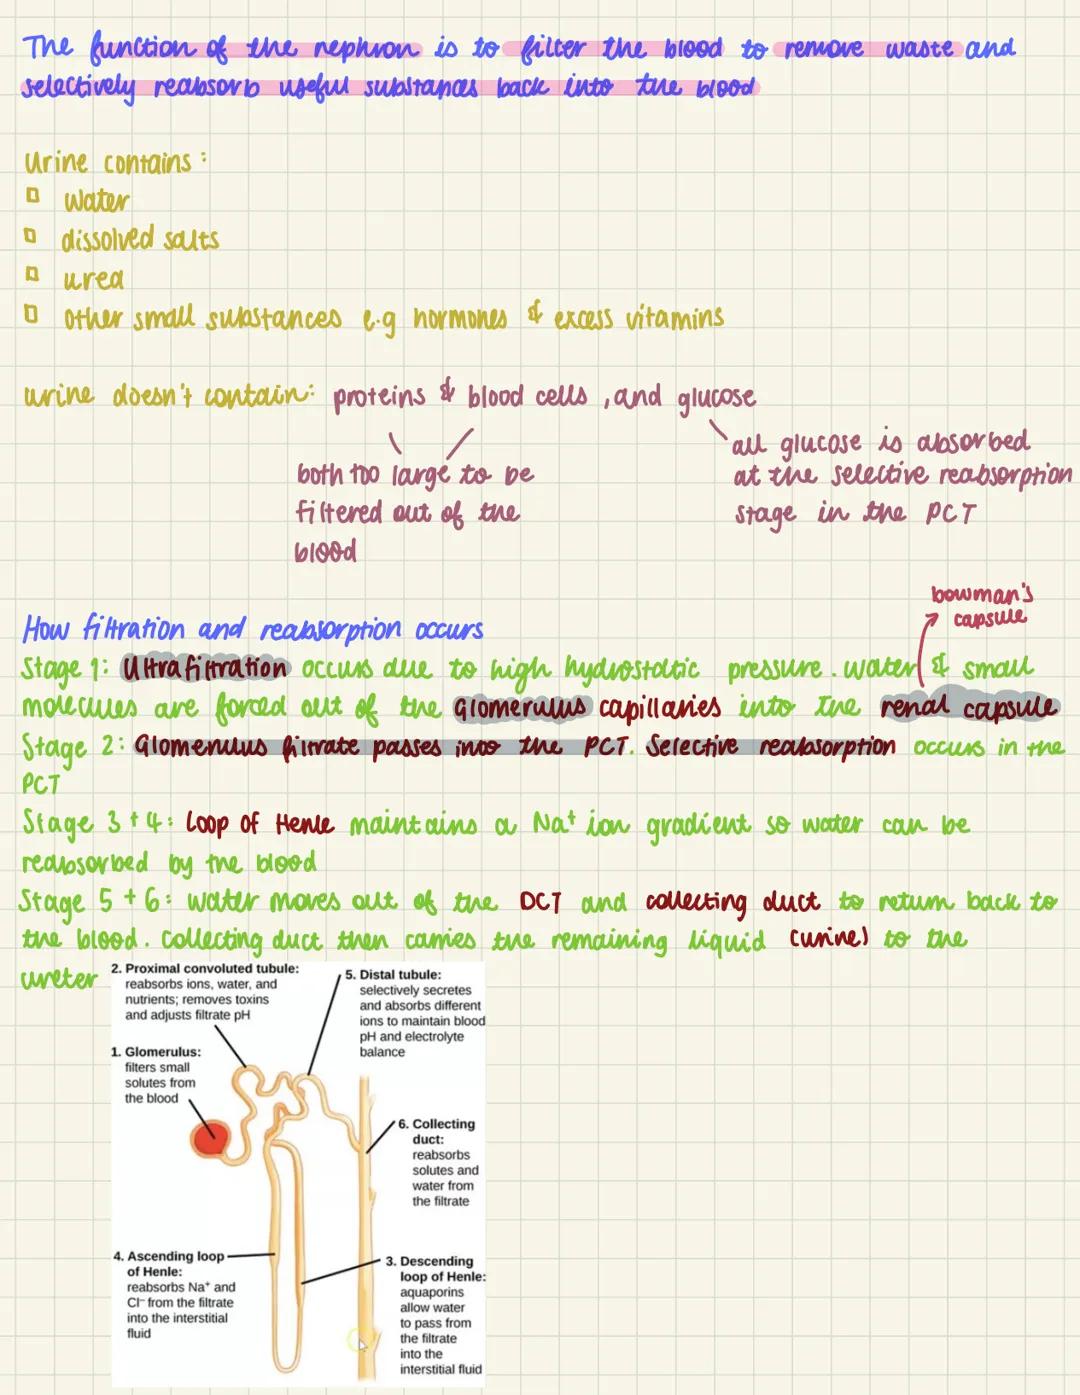 The function of the nephron is to filter the blood to remove waste and
selectively reabsorb useful substances back into the blood
Urine contains:
water
dissolved salts
urea
other small substances e.g hormones & excess vitamins
urine doesn't contain: proteins & blood cells , and glucose
both too large to be
filtered out of the
blood
all glucose is absorbed
at the selective reabsorption
stage in the PCT
bowman's
capsule
How filtration and reabsorption occurs
Stage 1: Ultrafiltration occurs due to high hydrostatic pressure. water & small
molecules are forced out of the Glomerulus capillaries into the renal capsule
Stage 2: Glomerulus filtrate passes into the PCT. Selective reabsorption occurs in the
PCT
Stage 3 + 4: Loop of Henle maintains a Na+ ion gradient so water can be
reabsorbed by the blood
Stage 5 + 6: water moves out of the DCT and collecting duct to return back to
the blood. Collecting duct then carries the remaining liquid (urine) to the
ureter
2. Proximal convoluted tubule:
reabsorbs ions, water, and
nutrients; removes toxins
and adjusts filtrate pH
5. Distal tubule:
selectively secretes
and absorbs different
ions to maintain blood
pH and electrolyte
balance
1. Glomerulus:
filters small
solutes from
the blood
6. Collecting
duct:
reabsorbs
solutes and
water from
the filtrate
4. Ascending loop
of Henle:
reabsorbs Na+ and
Cl− from the filtrate
into the interstitial
fluid
3. Descending
loop of Henle:
aquaporins
allow water
to pass from
the filtrate
into the
interstitial fluid